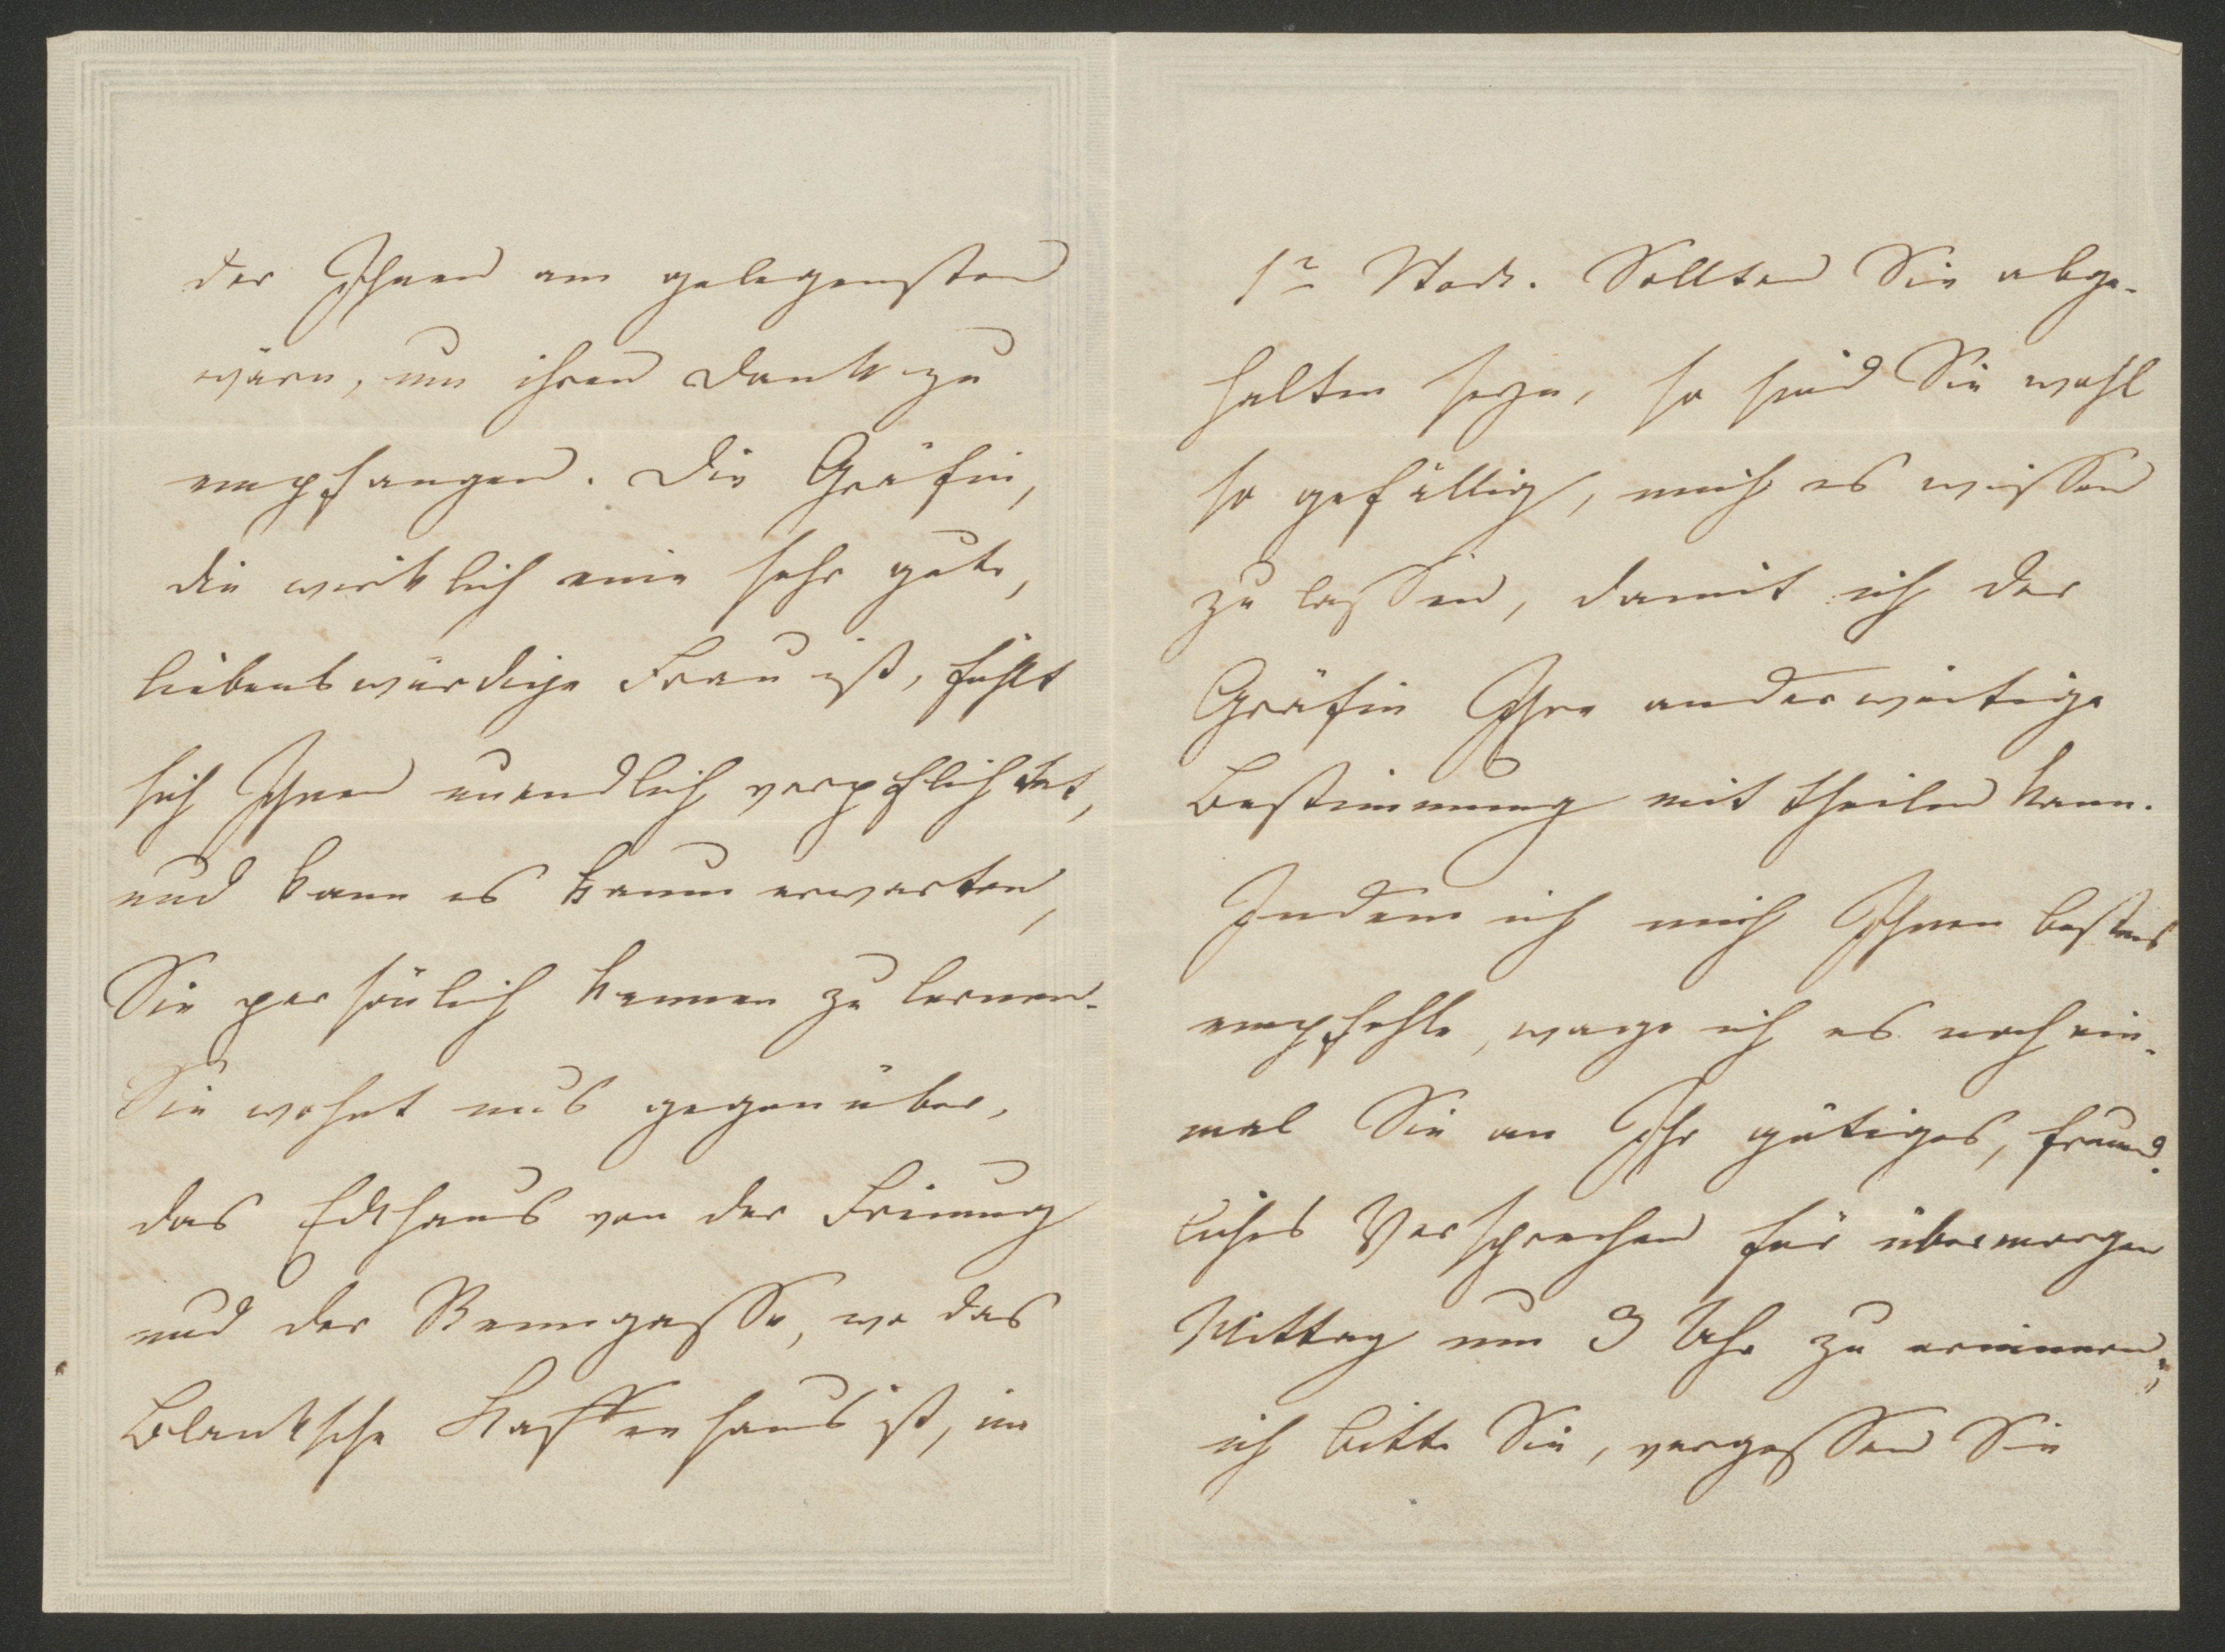 der Ihnen am gelegensten
wäre, um ihren Dank zu
empfangen. Die Gräfin,
die wirklich eine sehr gute,
liebenswürdige Frau ist, fühlt
sich Ihnen unendlich verpflichtet,
und kann es kaum erwarten,
Sie persönlich kennen zu lernen.
Sie wohnt uns gegenüber,
das Eckhaus von der Freiung
und der Renngasse, wo das
Blanksche Kaffeehaus ist, im
1r Stock. Sollten Sie abge-
halten seyn, so sind Sie wohl
so gefällig, mich es wissen
zu lassen, damit ich der
Gräfin Ihre anderweitige
Bestimmung mit theilen kann.
Indem ich mich Ihnen bestens
empfehle, wage ich es noch ein-
mal Sie an Ihr gütiges, freund-
liches Versprechen für übermorgen
Mittag um 3 Uhr zu erinnern;
ich bitte Sie, vergessen Sie